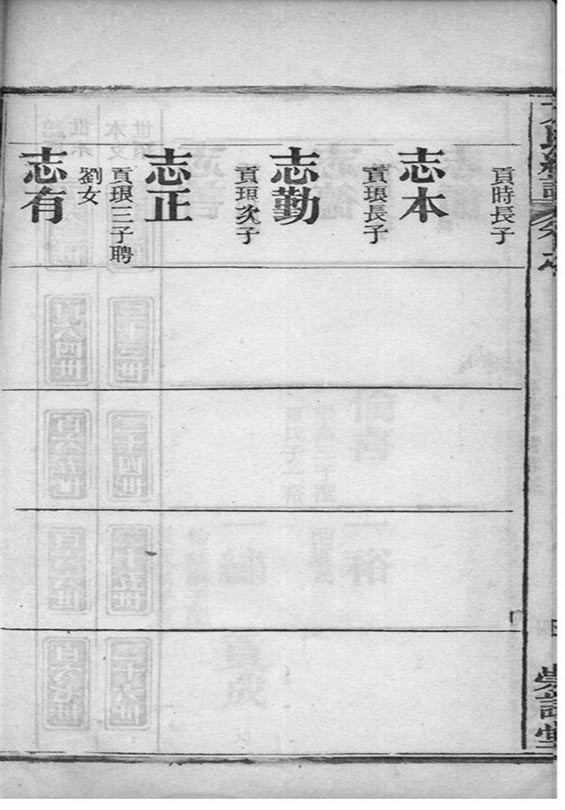 貢時長子
志本
貢琅長子
志勤
貢琅次子
志正
貢琅三子聘
劉女
志有